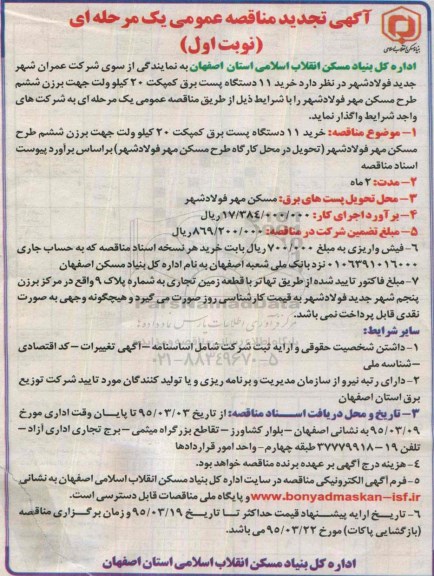 آگهی تجدید مناقصه عمومی یک مرحله ای
(نوبت اول)
اداره کل بنیاد مسکن انقلاب اسلامی استان اصفهان به نمایندگی از سوی شرکت عمران شهر
جدید فولادشهر در نظر دارد خرید ۱۱ دستگاه پست برق کمپکت ۲۰ کیلو ولت جهت برزن ششم
طرح مسکن مهر فولادشهر را با شرایط ذیل از طریق مناقصه عمومی یک مرحله ای به شرکت های
واجد شرایط واگذار نماید.
۱- موضوع مناقصه: خرید ۱۱ دستگاه پست برق کمپکت ۲۰ کیلو ولت جهت برزن ششم طرح
مسکن مهر فولادشهر (تحویل در محل کارگاه طرح مسکن مهر فولادشهر) براساس برآورد پیوست
اسناد مناقصه
۲- مدت: ۲ ماه
۳- محل تحویل پست های برق: مسکن مهر فولادشهر
۴- برآورد اجرای کار: ۱۷/۳۸۴/۰۰۰/۰۰۰ ریال
۵- مبلغ تضمین شرکت در مناقصه: ۸۶۹/۲۰۰/۰۰۰ ریال
۶- فیش واریزی به مبلغ ۷۰۰/۰۰۰ ریال بابت خرید هر نسخه اسناد مناقصه که به حساب جاری
۰۱۰۶۳۹۱۰۱۶۰۰۰ نزد بانک ملی شعبه اصفهان به نام اداره کل بنیاد مسکن اصفهان
۷- مبلغ فاکتور تایید شده از طریق تهاتر با قطعه زمین تجاری به شماره پلاک ۹ واقع در مرکز برزن
پنجم شهر جدید فولادشهر به قیمت کارشناسی روز صورت می گیرد و هیچگونه وجهی به صورت
نقدی قابل پرداخت نمی باشد.
سایر شرایط:
۱- داشتن شخصیت حقوقی و ارایه ثبت شرکت شامل اساسنامه - آگهی تغییرات - کد اقتصادی
- شناسه ملی
۲- دارای رتبه نیرو از سازمان مدیریت و برنامه ریزی و یا تولید کنندگان مورد تایید شرکت توزیع
برق استان اصفهان
۳- تاریخ و محل دریافت اسناد مناقصه: از تاریخ ۹۵/۰۳/۰۳ تا پایان وقت اداری مورخ
۹۵/۰۳/۰۹ به نشانی اصفهان - بلوار کشاورز - تقاطع بزرگراه میثمی - برج تجاری اداری آزاد -
تلفن ۱۹-۳۷۷۷۹۹۱۸ طبقه چهارم - واحد امور قراردادها
۴- هزینه درج آگهی بر عهده برنده مناقصه خواهد بود.
۵- فرم آگهی الکترونیکی مناقصه در سایت اداره کل بنیاد مسکن انقلاب اسلامی اصفهان به نشانی
www.bonyadmaskan-isf.ir و پایگاه ملی مناقصات قابل دسترسی است.
۶- تاریخ ارایه پیشنهاد قیمت حداکثر تا تاریخ ۹۵/۰۳/۱۹ و زمان برگزاری مناقصه
(بازگشایی پاکات) مورخ ۹۵/۰۳/۲۲ می باشد.
اداره کل بنیاد مسکن انقلاب اسلامی استان اصفهان
ParsNamadData
۰۲۱-۸۸۳۴۹۶۷۰-۵